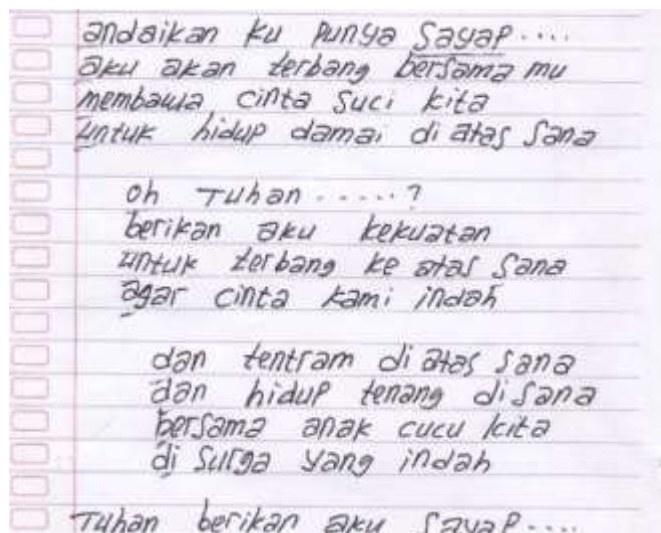 andaikan ku punya sayap....
aku akan terbang bersama mu
membawa cinta suci kita
untuk hidup damai di atas sana
oh Tuhan.....?
berikan aku kekuatan
untuk terbang ke atas sana
agar cinta kami indah
dan tentram di atas sana
dan hidup tenang di sana
bersama anak cucu kita
di surga yang indah
Tuhan berikan aku sayap....